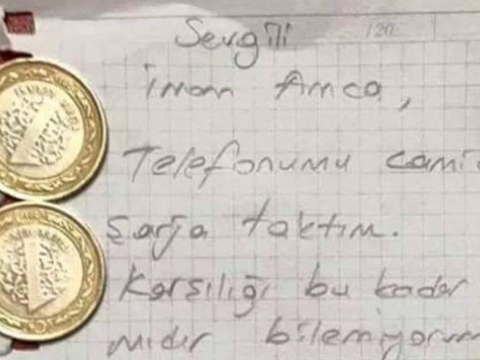 Sevgili
İmam Amca,
Telefonumu cami
şarja taktım.
Karşılığı bu kadar
mıdır bilemiyorum